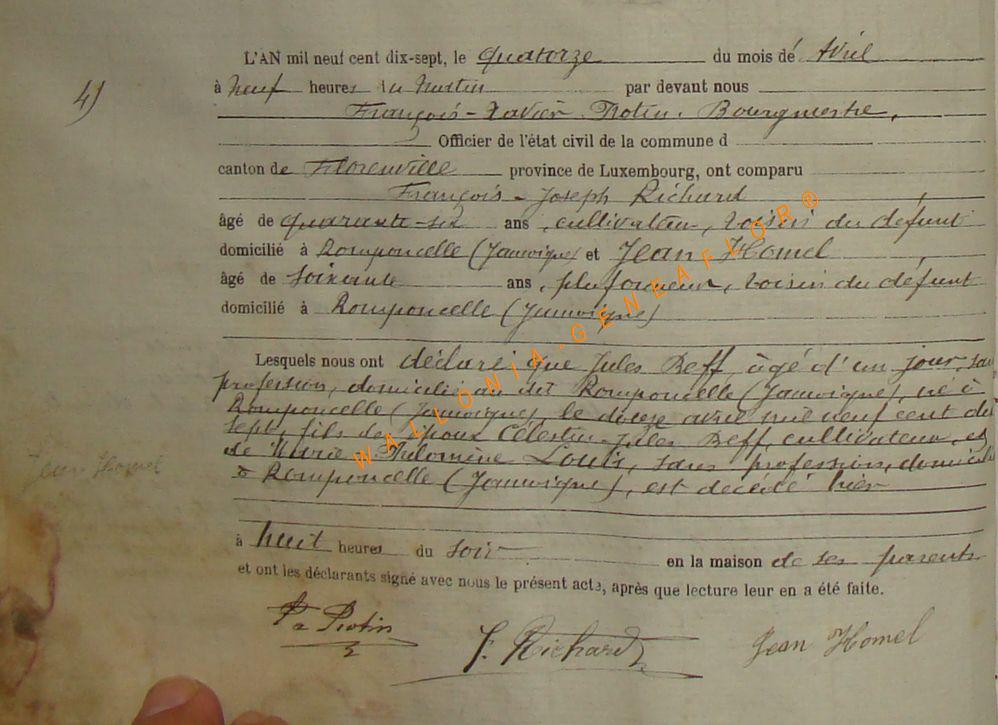 L'AN mil neuf cent dix-sept, le quatorze du mois de Avril
41
à neuf heures du matin par devant nous
François-Xavier Rotin, Bourgmestre,
Officier de l'état civil de la commune d
canton de Florenville province de Luxembourg, ont comparu
François-Joseph Richard
âgé de quarante-six ans, cultivateur, voisin du défunt
domicilié à Romponcelle (Jamoigne) et Jean Homel
âgé de soixante ans, plafonneur, voisin du défunt
domicilié à Romponcelle (Jamoigne)
Lesquels nous ont déclaré que Jules Beff, âgé d'un jour,
profession, domicilié au dit Romponcelle (Jamoigne), né à
Romponcelle (Jamoigne), le douze avril mil neuf cent dix
sept, fils des époux Célestin-Jules Beff, cultivateur, et
de Marie Philomène Louis, sans profession,
à Romponcelle (Jamoigne), est décédé hier
Jean Homel
à huit heures du soir en la maison de ses parents
et ont les déclarants signé avec nous le présent acte, après que lecture leur en a été faite.
Rotin
F. Richard
Jean Homel
WALLONIA-GENEAFLOR®